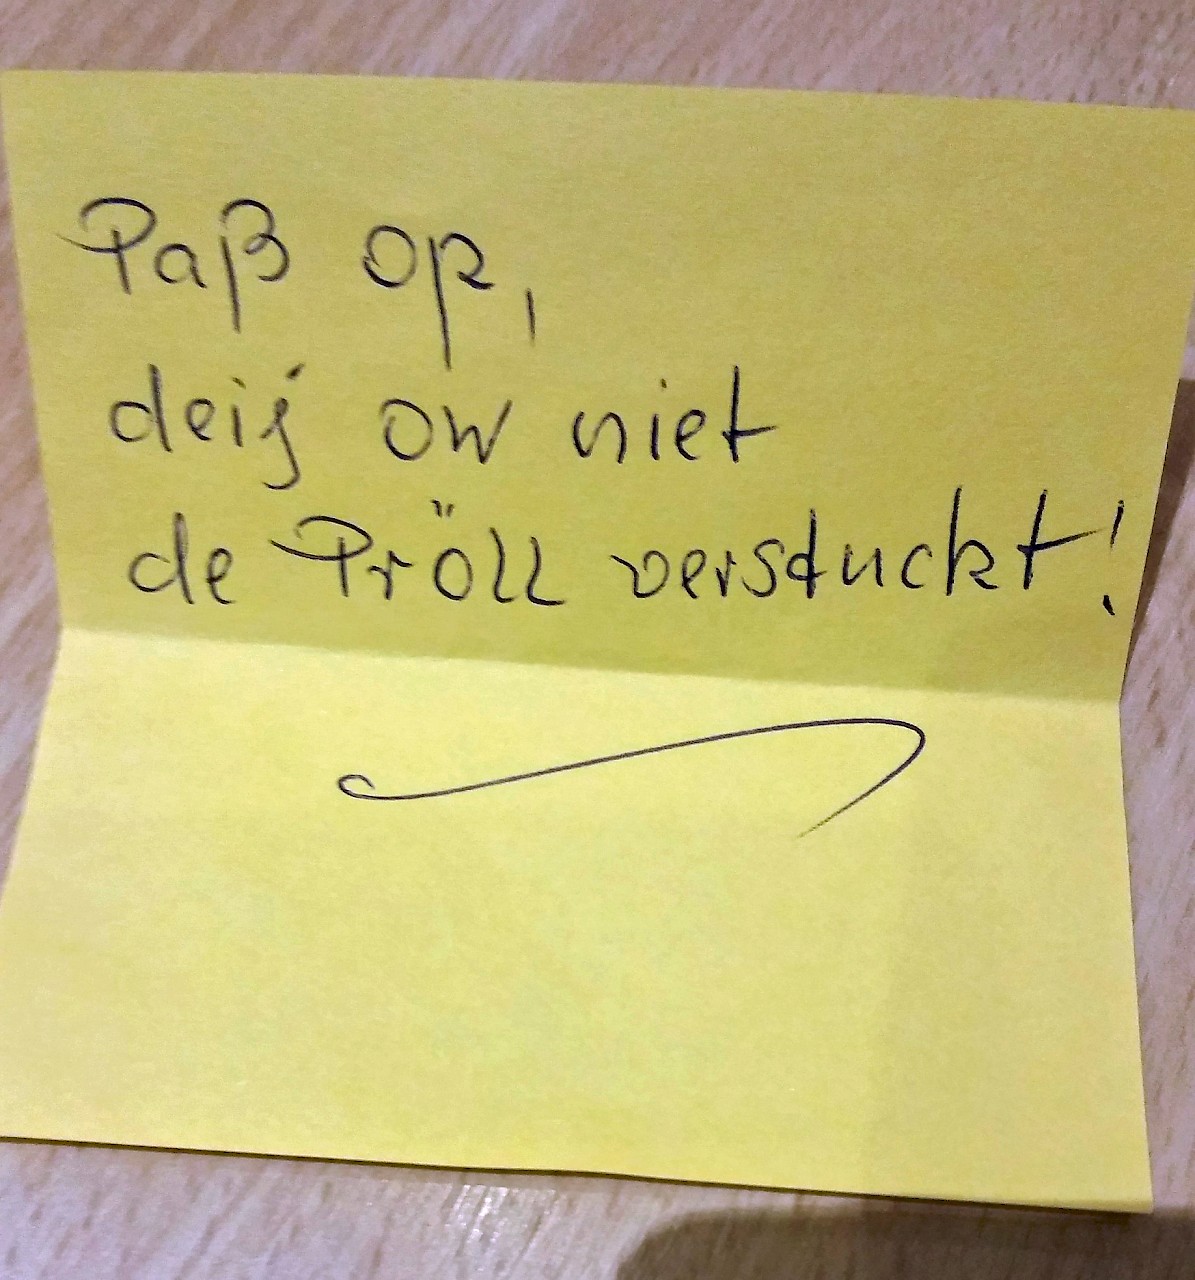 Paß op,
deij ow niet
de Pröll verstuckt!